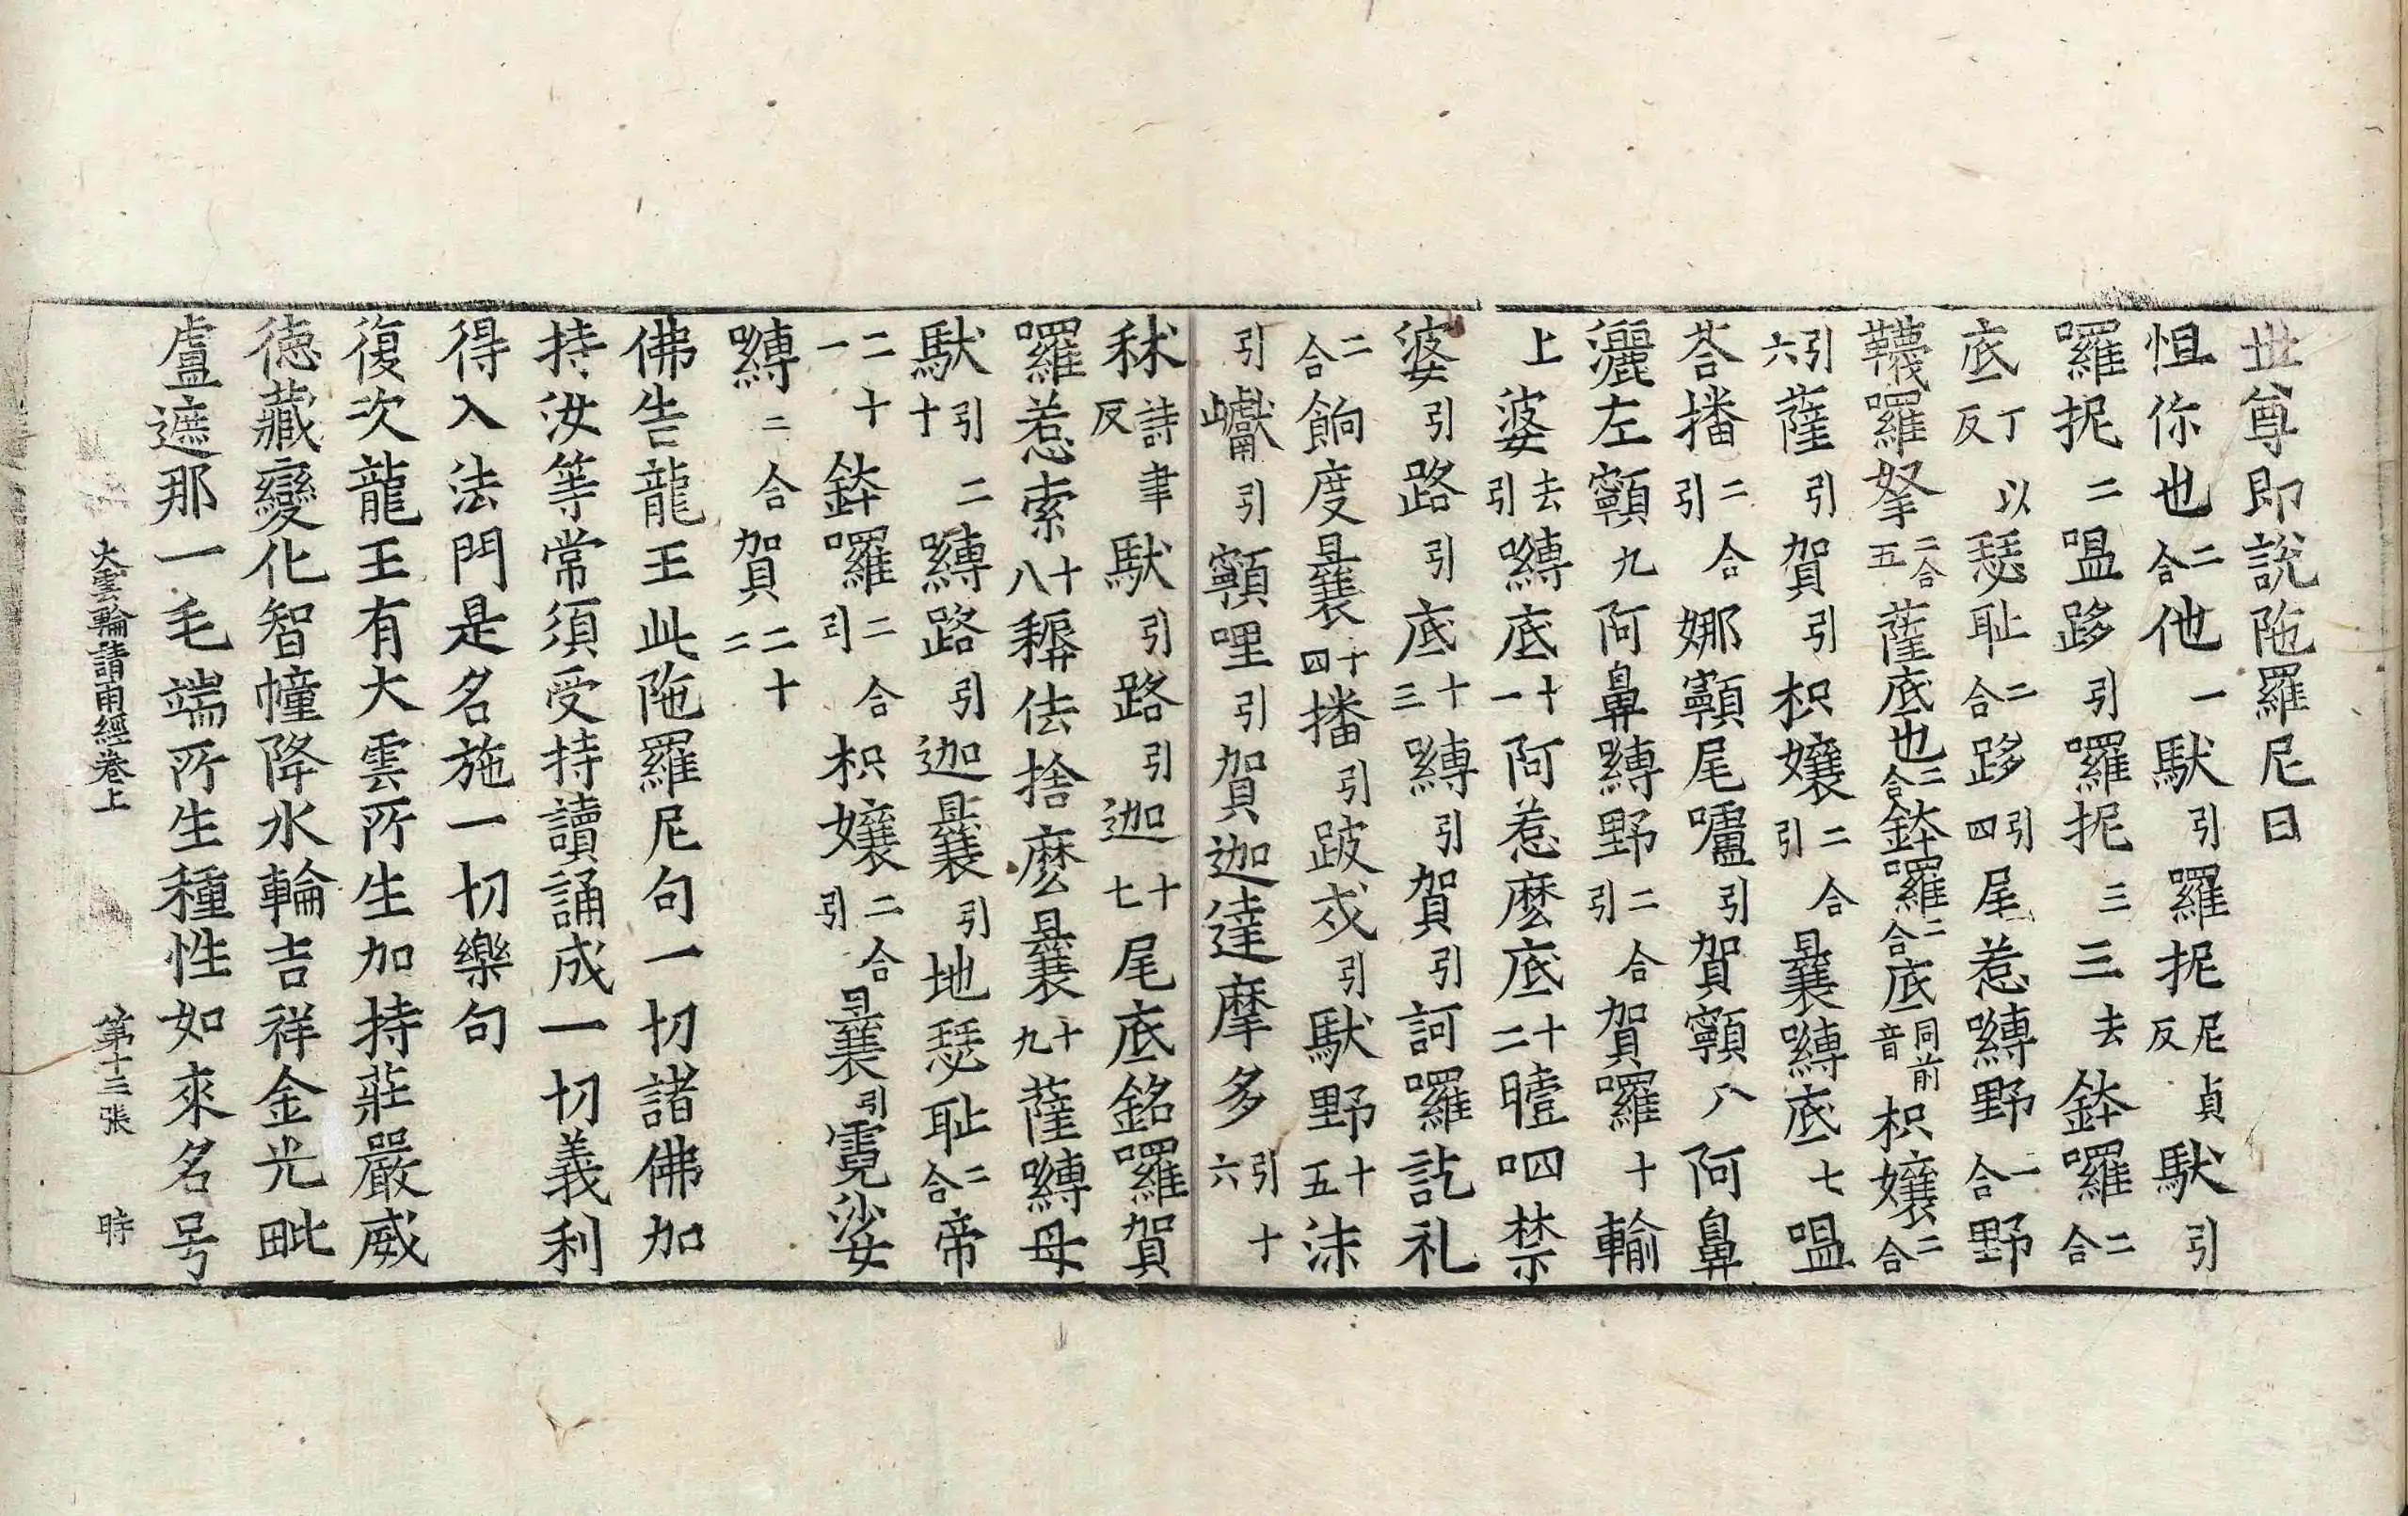 世尊即說陁羅尼曰
怛你也二合他一馱引羅抳尼貞反馱引
羅抳二嗢跢引羅抳三三去鉢囉二合
底丁以反瑟耻二合跢引四尾惹嚩野二合野
韈囉拏二合五薩底也二合鉢囉二合底同前音枳孃二合
引六薩引賀引枳孃二合引曩嚩底七嗢
荅播二合引娜顐尾嚧引賀顐八阿鼻
灑左顐九阿鼻嚩野二合引賀囉十輸
上婆去引嚩底十一阿惹麼底十二曀呬禁
婆引路引底十三嚩引賀引訶囉訖礼
二合餉度曩十四播引跛戍引馱野十五沫
引巘引顐哩引賀迦達摩多引十六
秫詩聿反馱引路引迦十七尾底銘囉賀
囉惹索十八㮏佉捨麼曩十九薩嚩母
馱引二十嚩路引迦曩引地瑟耻二合帝
二十一鉢囉二合引枳孃二合引曩引霓娑
嚩二合賀二十二
佛告龍王此陁羅尼句一切諸佛加
持汝等常須受持讀誦成一切義利
得入法門是名施一切樂句
復次龍王有大雲所生加持莊嚴威
徳藏變化智幢降水輪吉祥金光毗
盧遮那一毛端所生種性如來名号
大雲輪請雨經卷上 第十三張 時